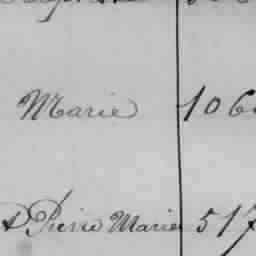 Marie 106
Pierre Marie 517